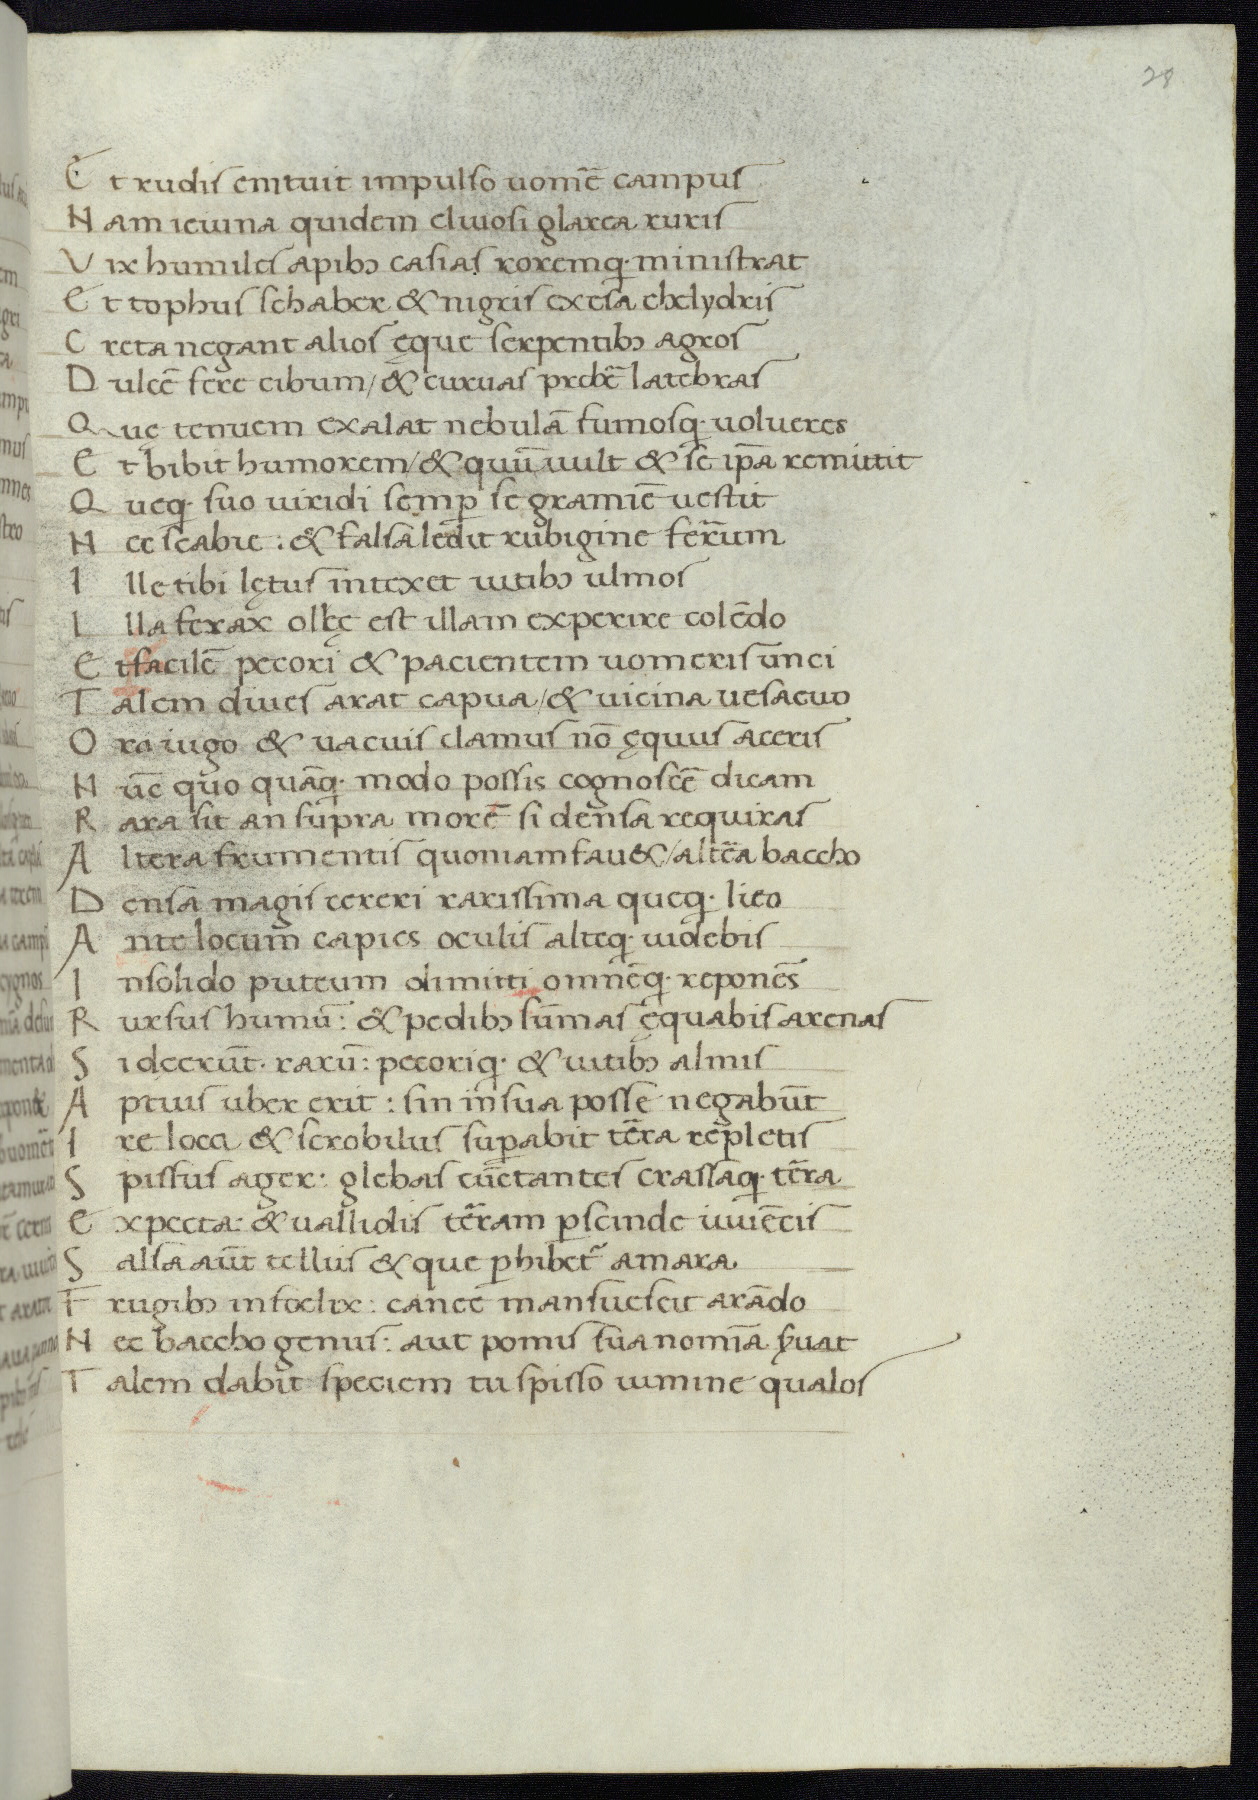 28
Et rudis enituit impulso uomē̃ campus
Nam ieiuna quidem cliuosi glarea ruris
Vix humiles apibꝫ casias roremq; ministrat
Et tophus schaber & nigris exesa chelydris
Creta negant alios ęque serpentibꝫ agros
Dulcē fere cibum / & curuas prebē̃ latebras
Quę tenuem exalat nebulā fumosq; uolucres
Et bibit humorem / & quū uult & se ip̄a remittit
Queq; suo uiridi semꝑ se gramīe uestit
Nec scabie : & salsa ledit rubigine ferrum
Ille tibi lętus intexet uitibꝫ ulmos
Illa ferax olęę est illam experire colēdo
Et facilē pecori & pacientem uomeris unci
Talem diues arat capua / & uicina uesaeuo
Ora iugo & uacuis clamus nō ęquus acerris
Nūc quo quāq; modo possis cognoscē̃ dicam
Rara sit an supra morē si densa requiras
Altera frumentis quoniam fau& / altẽa baccho
Densa magis cereri rarissima queq; lieo
Ante locum capies oculis alteq; uidebis
In solido puteum dimitti omnēq; repones
Rursus humū : & pedibꝫ sūmas ęquabis arenas
Si deerūt. rarū : pecoriq; & uitibꝫ almis
Aptius uber erit : sin in sua posse negabūt
Ire loca & scrobilus suꝑabit tẽra repletis
Spissus ager : glebas cūctantes crassaq; tẽra
Expecta : & uallidis tẽram ꝑscinde iuuēcis
Salsa aūt tellus & que ꝑhibet᷑ amara
Frugibꝫ infoelix : ea nec̄ mansuescit arādo
Nec baccho genus : aut pomis sua nomīa ẜuat
Talem dabit speciem tu spisso uimine qualos